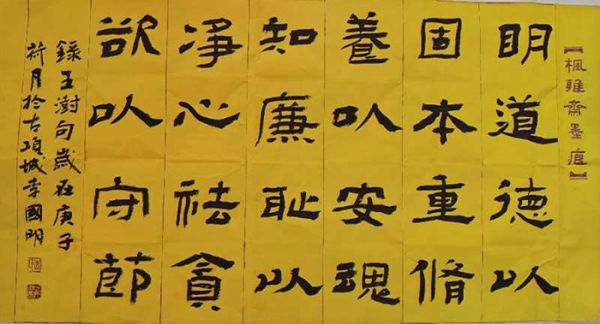 【楓雅齋墨痕】
明道德以
固本重脩
養以安魂
知廉恥以
淨心祛貪
欲以守節
錄王澍句歲在庚子
荷月於古項城李國明